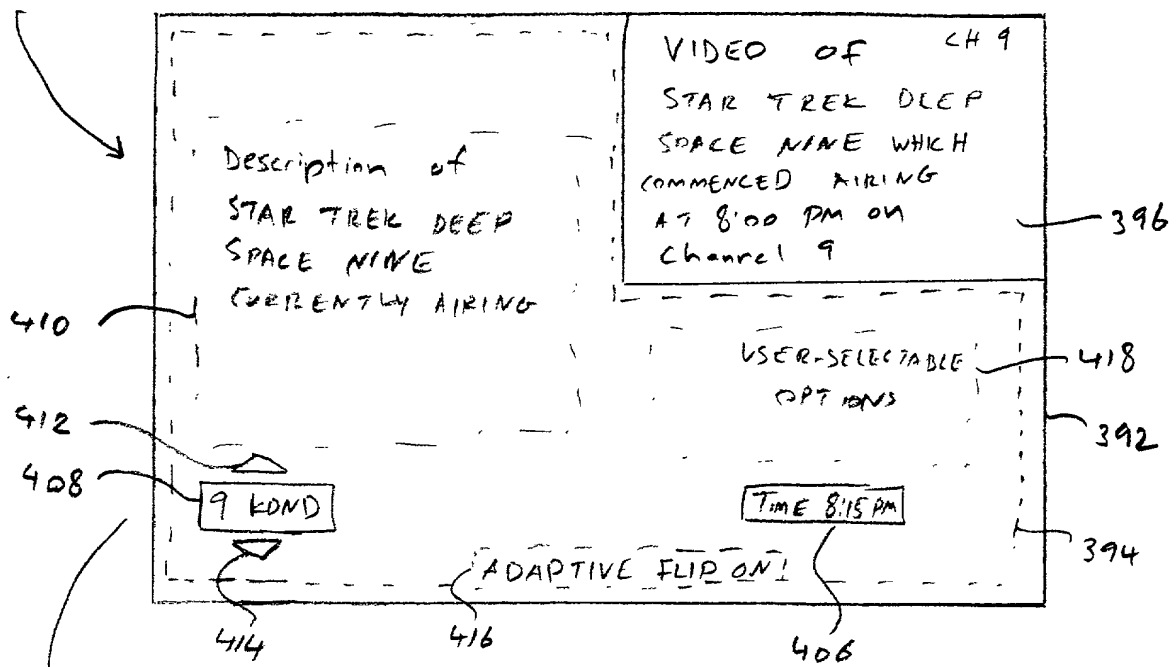 VIDEO OF CH 9
STAR TREK DEEP
SPACE NINE WHICH
COMMENCED AIRING
AT 8:00 PM ON
Channel 9
396
Description of
STAR TREK DEEP
SPACE NINE
CURRENTLY AIRING
410
USER-SELECTABLE
OPTIONS
418
392
412
408
9 KDND
TIME 8:15 PM
394
ADAPTIVE FLIP ON
414
416
406